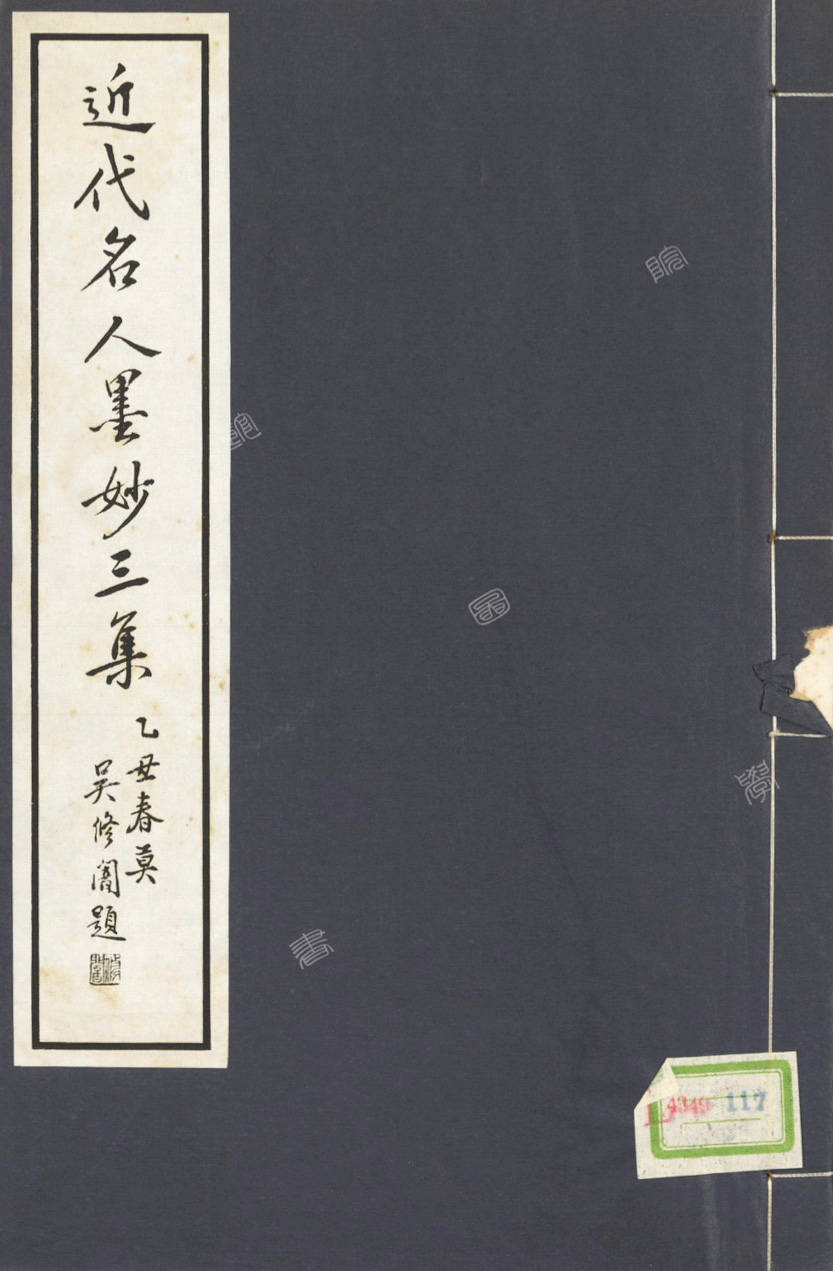 近代名人墨妙三集
乙丑春莫
吳修闇題
4349 117